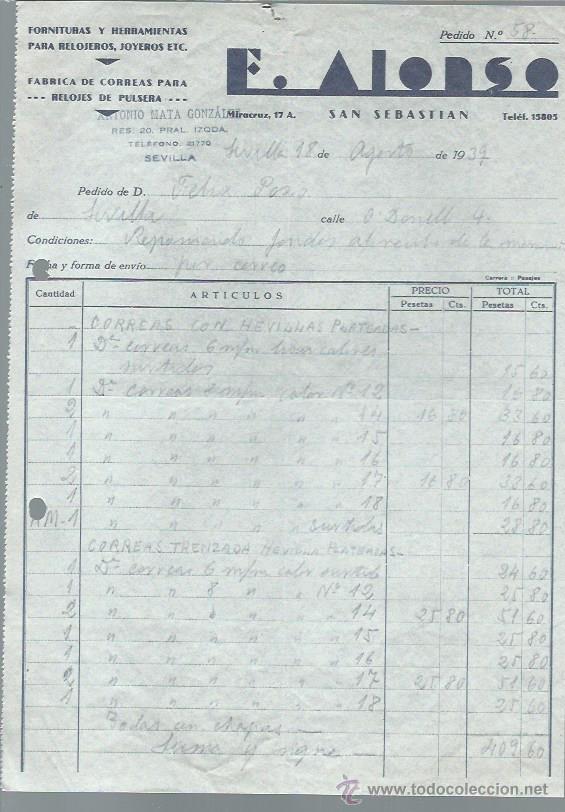 FORNITURAS Y HERRAMIENTAS
PARA RELOJEROS, JOYEROS ETC.
FABRICA DE CORREAS PARA
--- RELOJES DE PULSERA ---
Pedido N.º 58-
F. Alonso
Miracruz, 17 A. SAN SEBASTIAN Teléf. 15805
ANTONIO MATA GONZÁLEZ
RES. 20. PRAL. IZQDA.
TELÉFONO. 21770
SEVILLA
Sevilla 18 de Agosto de 1939
Pedido de D. Felix Pozo
de Sevilla calle O'Donell 4.
Condiciones: fondos al recibo de la
Fecha y forma de envío por correo
Carrera :: Pasajes
Cantidad ARTICULOS PRECIO TOTAL
Pesetas Cts. Pesetas Cts.
CORREAS CON HEVILLAS PLATEADAS-
1 Dª correas 6 m/m colores
surtidos 15 60
1 Dª correas 8 m/m color Nº 12 16 80
2 " " " " " 14 16 80 33 60
1 " " " " " 15 16 80
1 " " " " " 16 16 80
2 " " " " " 17 16 80 33 60
1 " " " " " 18 16 80
AM-1 " " " " " surtidas 28 80
CORREAS TRENZADA HEVILLA PLATEADAS-
1 Dª correas 6 m/m color surtido 24 60
1 " " 8 " " Nº 12 25 80
2 " " " " " 14 25 80 51 60
1 " " " " " 15 25 80
1 " " " " " 16 25 80
2 " " " " " 17 25 80 51 60
1 " " " " " 18 25 60
Todas en chapas-
Suma y sigue- 409 60
www.todocoleccion.net